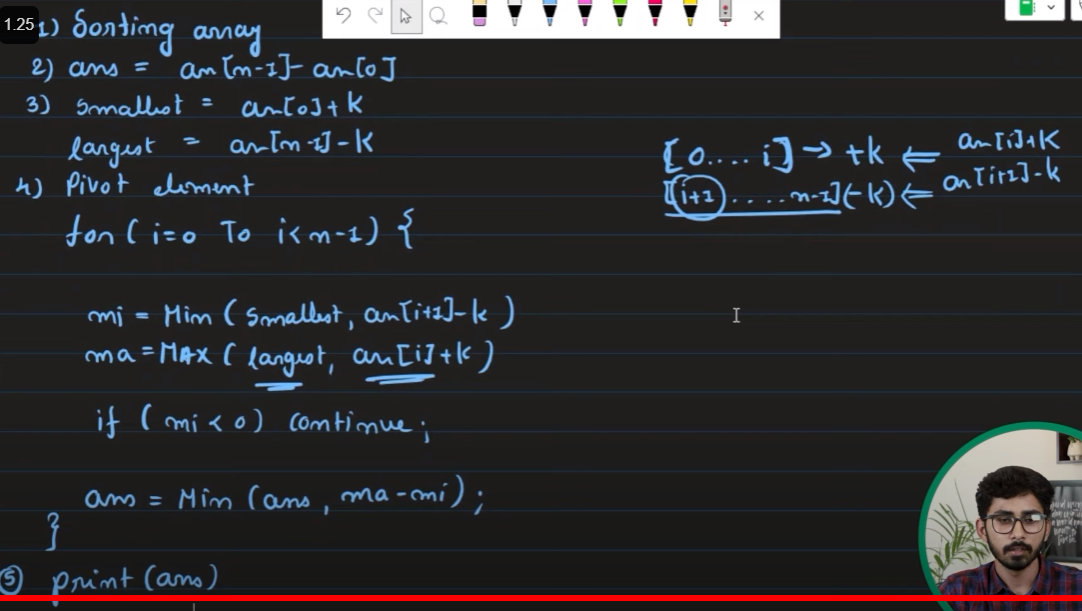 1.25
1) Sorting array
2) ans = arr[n-1] - arr[0]
3) smallest = arr[0] + k
largest = arr[n-1] - k
4) Pivot element
for ( i=0 To i<n-1) {
mi = Min ( smallest, arr[i+1]-k )
ma = MAX ( largest, arr[i]+k )
if ( mi < 0) continue;
ans = Min (ans, ma-mi);
}
5 print (ans)
[0....i] → +k ⇐ arr[i]+k
[i+1.....n-1](-k) ⇐ arr[i+1]-k